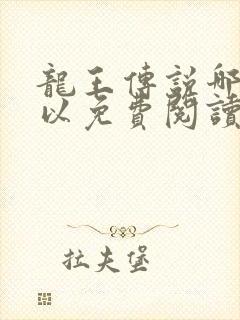 龍王傳説哪
以免費閱讀
拉夫堡